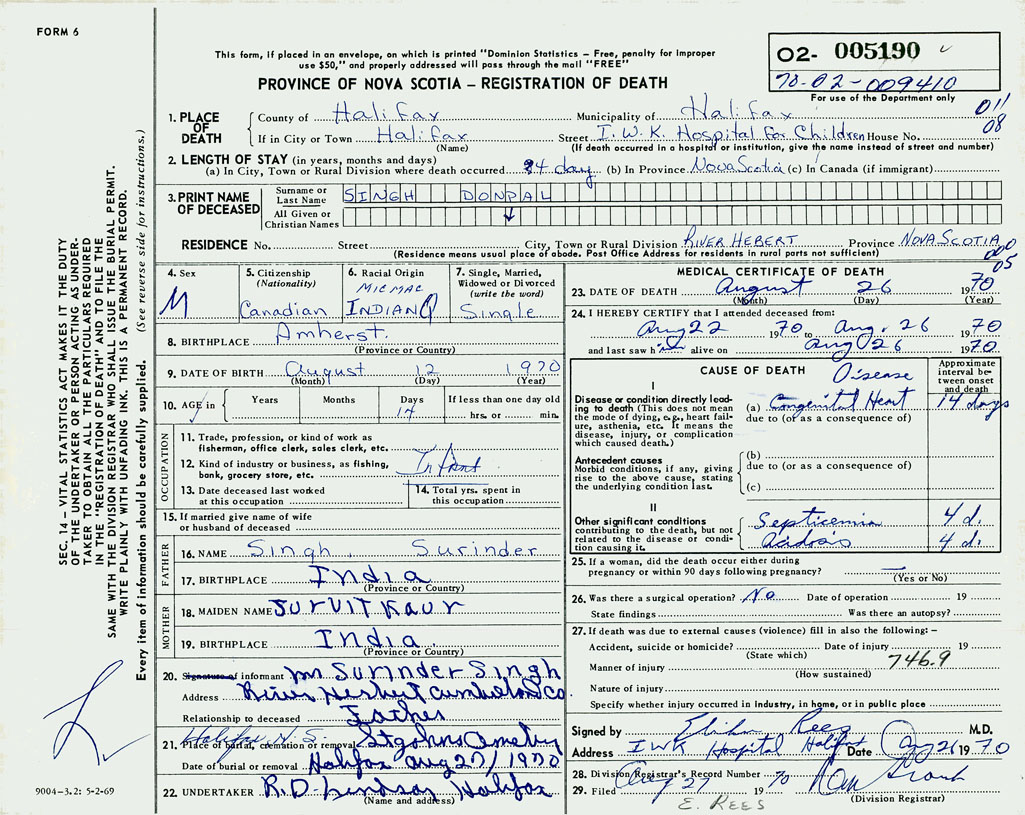 FORM 6
This form, if placed in an envelope, on which is printed "Dominion Statistics – Free, penalty for improper
use $50," and properly addressed will pass through the mail "FREE"
PROVINCE OF NOVA SCOTIA – REGISTRATION OF DEATH
02- 005190
70-02-009410
For use of the Department only
011
08
1. PLACE OF DEATH
County of Halifax Municipality of Halifax
If in City or Town Halifax Street I.W.K. Hospital for Children House No.
(Name) (If death occurred in a hospital or institution, give the name instead of street and number)
2. LENGTH OF STAY (in years, months and days)
(a) In City, Town or Rural Division where death occurred 4 day (b) In Province Nova Scotia (c) In Canada (if immigrant)
3. PRINT NAME OF DECEASED
Surname or Last Name SINGH DONPAL
All Given or Christian Names
RESIDENCE No. Street City, Town or Rural Division RIVER HEBERT Province NOVA SCOTIA
(Residence means usual place of abode. Post Office Address for residents in rural parts not sufficient)
000
05
4. Sex M
5. Citizenship (Nationality) Canadian
6. Racial Origin MICMAC INDIAN
7. Single, Married, Widowed or Divorced (write the word) Single
8. BIRTHPLACE Amherst.
(Province or Country)
9. DATE OF BIRTH August 12 1970
(Month) (Day) (Year)
10. AGE in Years Months Days 14 If less than one day old hrs. or min.
OCCUPATION
11. Trade, profession, or kind of work as
fisherman, office clerk, sales clerk, etc.
12. Kind of industry or business, as fishing,
bank, grocery store, etc. Infant
13. Date deceased last worked
at this occupation
14. Total yrs. spent in
this occupation
15. If married give name of wife
or husband of deceased
FATHER
16. NAME Singh, Surinder
17. BIRTHPLACE India
(Province or Country)
MOTHER
18. MAIDEN NAME SURVIT KAUR
19. BIRTHPLACE India
(Province or Country)
20. Signature of informant Mr Surinder Singh
Address River Herbert Cumberland Co.
Relationship to deceased Father
Halifax N.S.
21. Place of burial, cremation or removal St Johns Cemetery
Date of burial or removal Halifax Aug 27/1970
22. UNDERTAKER R.D. Lindsay Halifax
(Name and address)
MEDICAL CERTIFICATE OF DEATH
23. DATE OF DEATH August 26 1970
(Month) (Day) (Year)
24. I HEREBY CERTIFY that I attended deceased from:
Aug 22 1970 to Aug. 26 1970
and last saw him alive on Aug 26 1970
CAUSE OF DEATH
Approximate interval between onset and death
I
Disease
Disease or condition directly leading to death (This does not mean the mode of dying, e.g., heart failure, asthenia, etc. It means the disease, injury, or complication which caused death.)
(a) Congenital Heart 14 days
due to (or as a consequence of)
Antecedent causes
Morbid conditions, if any, giving rise to the above cause, stating the underlying condition last.
(b)
due to (or as a consequence of)
(c)
II
Other significant conditions contributing to the death, but not related to the disease or condition causing it.
Septicemia 4 d.
Acidosis 4 d.
25. If a woman, did the death occur either during
pregnancy or within 90 days following pregnancy? —
(Yes or No)
26. Was there a surgical operation? No Date of operation 19
State findings Was there an autopsy?
27. If death was due to external causes (violence) fill in also the following:–
Accident, suicide or homicide? Date of injury 19
(State which) 746.9
Manner of injury
(How sustained)
Nature of injury
Specify whether injury occurred in industry, in home, or in public place
Signed by Elihu Rees M.D.
Address IWK Hospital Halifax Date Aug 26 1970
28. Division Registrar's Record Number
29. Filed Aug 27 1970
(Division Registrar)
E. REES
9004-3.2: 5-2-69
SEC. 14 – VITAL STATISTICS ACT MAKES IT THE DUTY
OF THE UNDERTAKER OR PERSON ACTING AS UNDER-
TAKER TO OBTAIN ALL THE PARTICULARS REQUIRED
IN THE "REGISTRATION OF DEATH" AND TO FILE THE
SAME WITH THE DIVISION REGISTRAR WHO SHALL ISSUE THE BURIAL PERMIT.
WRITE PLAINLY WITH UNFADING INK. THIS IS A PERMANENT RECORD.
Every item of information should be carefully supplied. (See reverse side for instructions.)